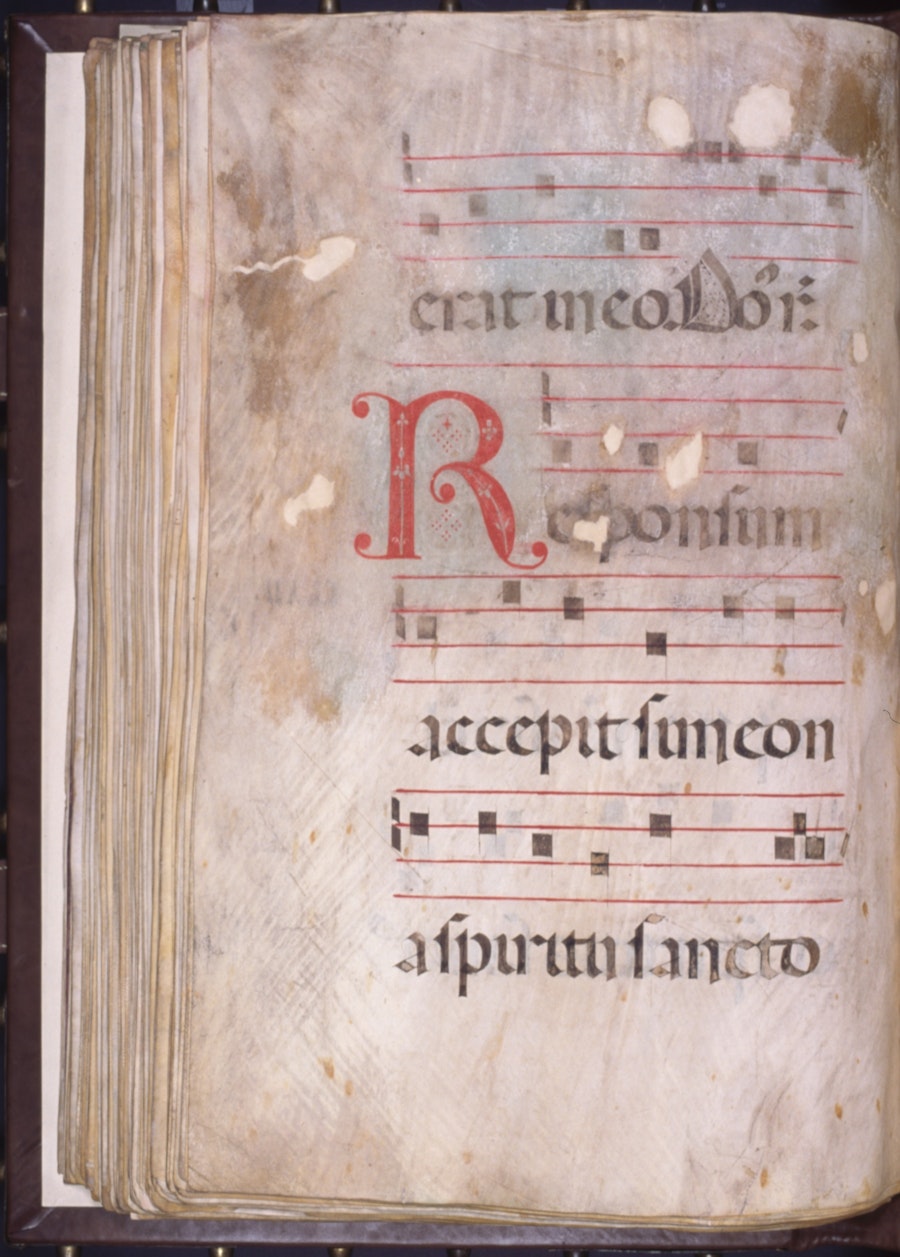 erat in eo.
Responsum
accepit simeon
a spiritu sancto